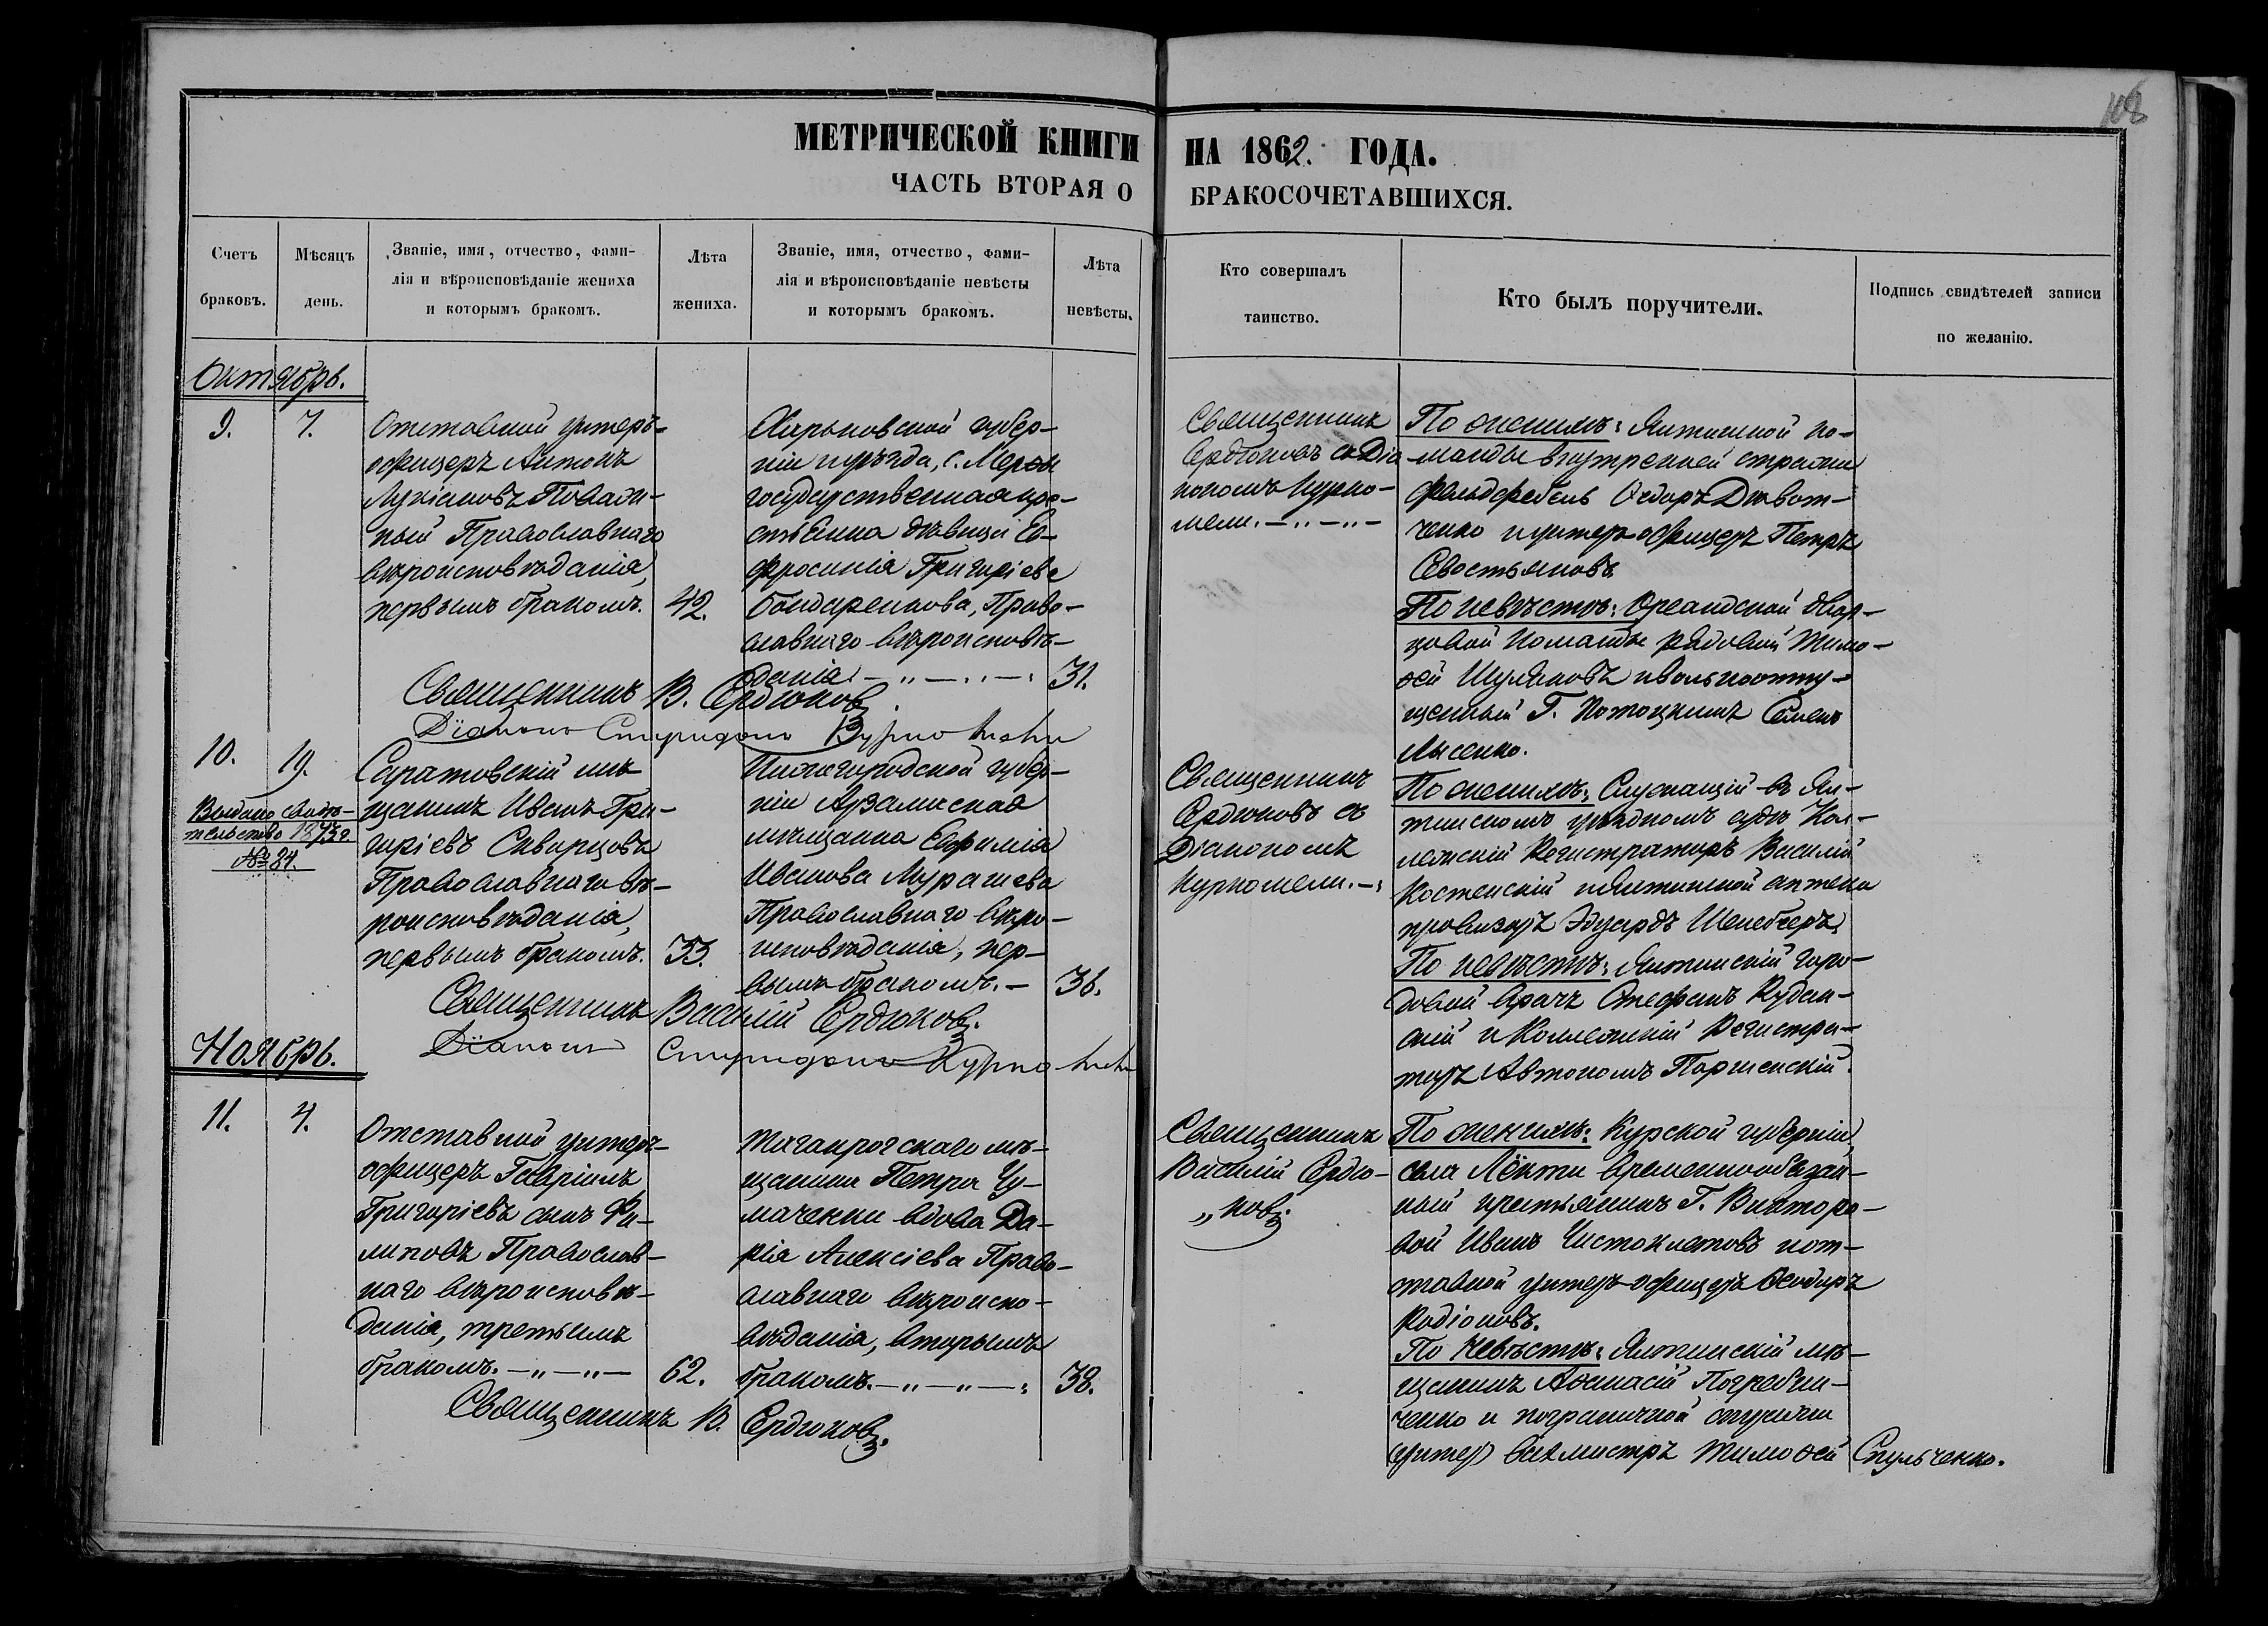 108
МЕТРИЧЕСКОЙ КНИГИ НА 1862. ГОДА.
ЧАСТЬ ВТОРАЯ О БРАКОСОЧЕТАВШИХСЯ.
Счетъ браковъ.
Мѣсяцъ день.
Званіе, имя, отчество, фами-
лія и вѣроисповѣданіе жениха
и которымъ бракомъ.
Лѣта жениха.
Званіе, имя, отчество, фами-
лія и вѣроисповѣданіе невѣсты
и которымъ бракомъ.
Лѣта невѣсты.
Кто совершалъ
таинство.
Кто былъ поручители.
Подпись свидѣтелей записи
по желанію.
Октябрь.
9.
7.
Отставной унтеръ-
офицеръ Антонъ
Лукіановъ
Православнаго
вѣроисповѣданія,
первымъ бракомъ.
42.
Харьковской губер-
ніи и уѣзда, с. Мерефы
государственная кре-
стьянка дѣвица Ев-
фросинія Григоріева
Бондаренкова, Право-
славнаго вѣроисповѣ-
данія. — „ — „ —
31.
Священникъ
Сердюковъ съ Діа-
кономъ Курко-
мели. — „ — „ —
По женихѣ: Ялтинской ко-
манды внутренней стражи
фельдфебель Ѳедоръ
и унтеръ-офицеръ Петръ
Севостьяновъ.
По невѣстѣ: Ореандской двор-
цовой команды рядовой Тимо-
ѳей и вольноотпу-
щенный Г. Потоцкимъ Семенъ
Лысенко.
Священникъ В. Сердюковъ.
Діаконъ Спиридонъ Куркомели
10.
19.
Выдано свидѣ-
тельство 1873 г.
№ 84.
Саратовскій мѣ-
щанинъ Иванъ Гри-
горіевъ Скворцовъ
Православнаго вѣ-
роисповѣданія,
первымъ бракомъ.
33.
Нижегородской губер-
ніи Арзамаская
мѣщанка Евфимія
Иванова Мурашева
Православнаго вѣро-
исповѣданія, пер-
вымъ бракомъ. —
36.
Священникъ
Сердюковъ съ
Діакономъ
Куркомели. —
По женихѣ: Служащій въ Ял-
тинскомъ уѣздномъ судѣ Кол-
лежскій Регистраторъ Василій
Костенскій и Ялтинской аптеки
провизоръ Эдуардъ
По невѣстѣ: Ялтинскій горо-
довой врачъ Стефанъ
и Коллежскій Регистра-
торъ Автономъ
Священникъ Василій Сердюковъ.
Діаконъ Спиридонъ Куркомели
Ноябрь.
11.
4.
Отставной унтеръ-
офицеръ Гавріилъ
Григоріевъ сынъ Фи-
липовъ Православ-
наго вѣроисповѣ-
данія, третьимъ
бракомъ. — „ — „ —
62.
Таганрогскаго мѣ-
щанина Петра Чу-
маченки вдова Да-
рія Алексіева Право-
славнаго вѣроиспо-
вѣданія, вторымъ
бракомъ. — „ — „ —
38.
Священникъ
Василій Сердю-
„ковъ.
По женихѣ: Курской губерніи,
села временнообязан-
ный крестьянинъ Г. Викторо-
вой Иванъ Чистоклетовъ и от-
ставной унтеръ-офицеръ Ѳеодоръ
Родіоновъ.
По невѣстѣ: Ялтинскій мѣ-
щанинъ Аѳанасій Погребни-
ченко и пограничной стражи
(унтеръ) вахмистръ Тимоѳей Спульченко.
Священникъ В. Сердюковъ.